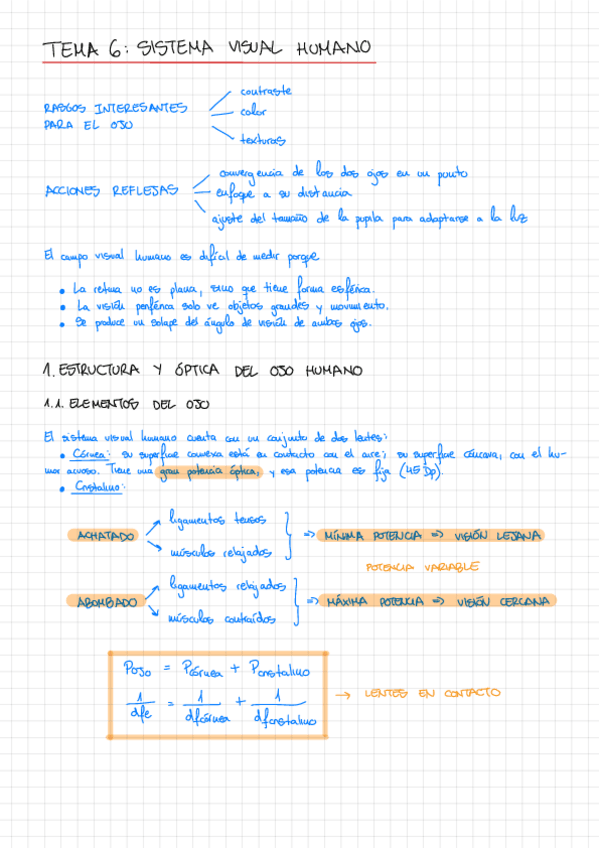 TEMA 6: SISTEMA VISUAL HUMANO
RASGOS INTERESANTES
PARA EL OJO
contraste
color
texturas
ACCIONES REFLEJAS
convergencia de los dos ojos en un punto
enfoque a su distancia
ajuste del tamaño de la pupila para adaptarse a la luz
El campo visual humano es difícil de medir porque
• La retina no es plana, sino que tiene forma esférica.
• La visión periférica solo ve objetos grandes y movimiento.
• Se produce un solape del ángulo de visión de ambos ojos.
1. ESTRUCTURA Y ÓPTICA DEL OJO HUMANO
1.1. ELEMENTOS DEL OJO
El sistema visual humano cuenta con un conjunto de dos lentes:
• Córnea: su superficie convexa está en contacto con el aire; su superficie cóncava, con el hu-
mor acuoso. Tiene una gran potencia óptica, y esa potencia es fija (45 Dp).
• Cristalino:
ACHATADO
ligamentos tensos
músculos relajados
=> MÍNIMA POTENCIA => VISIÓN LEJANA
POTENCIA VARIABLE
ABOMBADO
ligamentos relajados
músculos contraídos
=> MÁXIMA POTENCIA => VISIÓN CERCANA
Pojo = Pcórnea + Pcristalino
1/dfe = 1/dfcórnea + 1/dfcristalino
→ LENTES EN CONTACTO